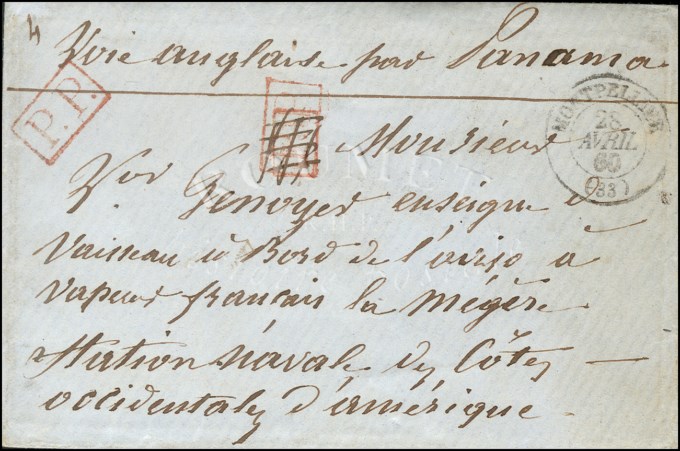 4
Voie anglaise par Panama
P.P.
MONTPELLIER
28
AVRIL
60
(33)
Monsieur
Genoyer enseigne de
Vaisseau à Bord de l'aviso à
vapeur français la Mégère
Station navale des Côtes
occidentales d'amérique